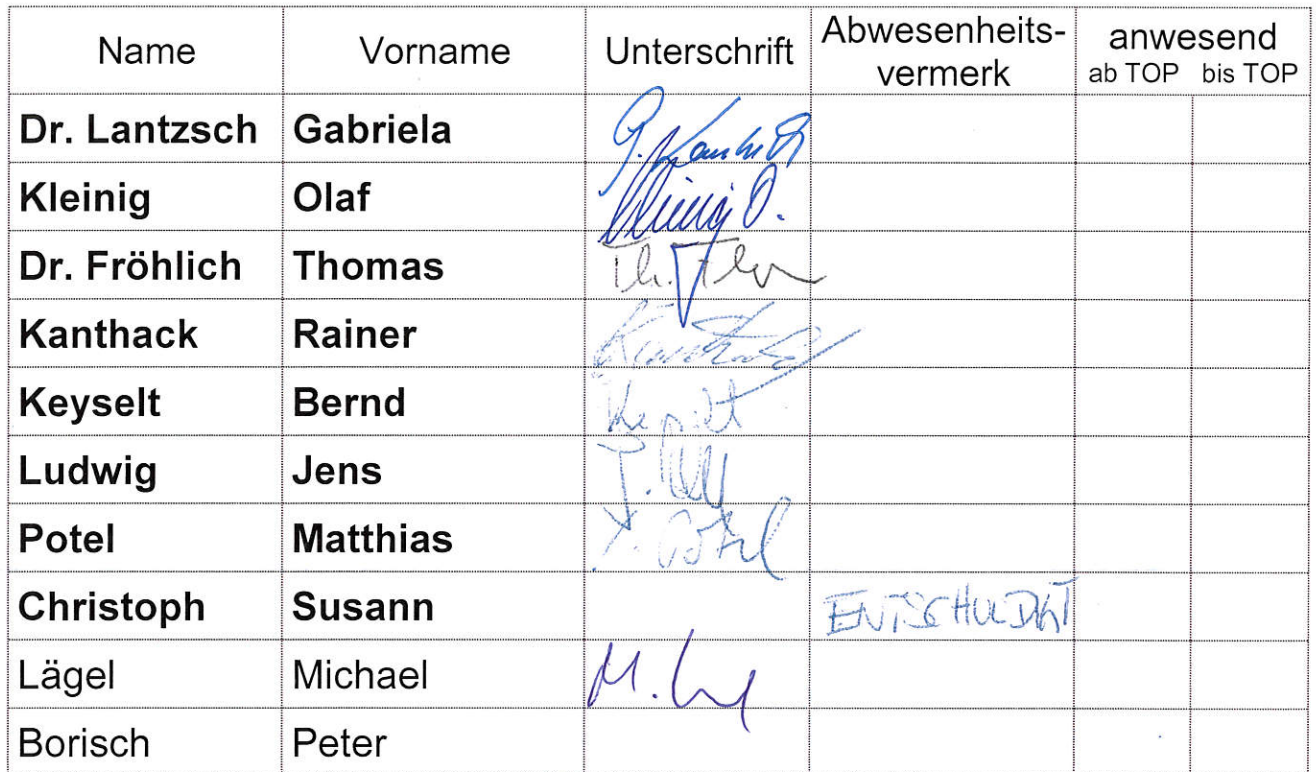 Name Vorname Unterschrift Abwesenheits- anwesend
vermerk ab TOP bis TOP
Dr. Lantzsch Gabriela
Kleinig Olaf O.
Dr. Fröhlich Thomas Th.
Kanthack Rainer
Keyselt Bernd
Ludwig Jens
Potel Matthias Potel
Christoph Susann ENTSCHULDIGT
Lägel Michael M.
Borisch Peter